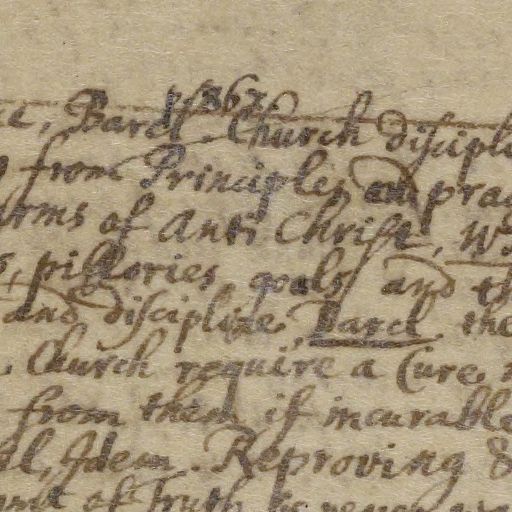 Barcl. Church discipl
from Principles and prac
arms of Anti Christ, W
pillories goals and th
and discipline, Barcl. the
Church require a Cure
from them if incurable
Idem. Reproving &
of Truth